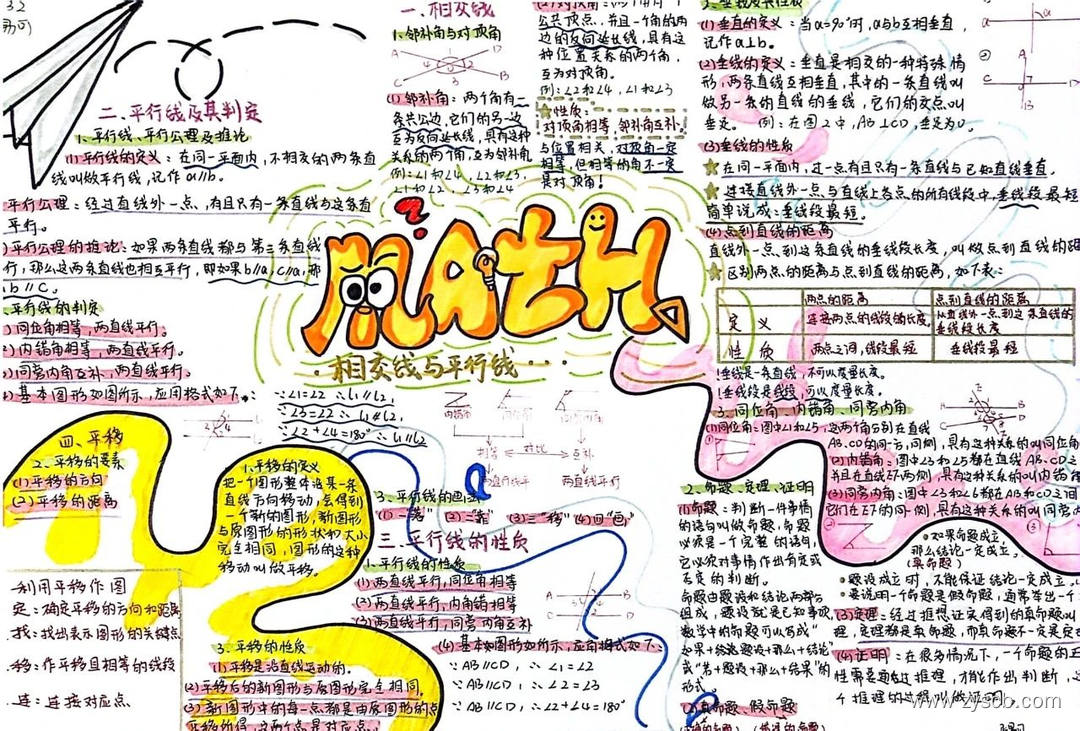 3.2
一、相交线
1.邻补角与对顶角
A
D
C
B
(1)邻补角：两个角有一
条公边，它们的另一边
互为反向延长线，具有这种
关系的两个角，互为邻补角
例：∠1和∠4、∠2和∠3、
∠1和∠2、∠3和∠4
公共顶点，并且一个角的两
边的反向延长线，具有这
种位置关系的两个角，
互为对顶角。
例：∠2和∠4，∠1和∠3
性质：
对顶角相等，邻补角互补。
与位置相关，对顶角一定
相等，但相等的角不一定
是对顶角！
(1)垂直的定义：当α=90°时，a与b互相垂直，
记作a⊥b。
(2)垂线的定义：垂直是相交的一种特殊情
形，两条直线互相垂直，其中的一条直线叫
做另一条的直线的垂线，它们的交点叫
垂足。例：在图2中，AB⊥CD，垂足为O。
(3)垂线的性质
在同一平面内，过一点有且只有一条直线与已知直线垂直。
连接直线外一点与直线上各点的所有线段中，垂线段最短
简单说成：垂线段最短。
(4)点到直线的距离
直线外一点到这条直线的垂线段长度，叫做点到直线的距
区别两点的距离与点到直线的距离，如下表：
两点的距离
点到直线的距离
定义
连接两点的线段的长度。
从直线外一点到这条直线的
垂线段长度
性质
两点之间，线段最短
垂线段最短
!垂线是一条直线，不可以度量长度。
!垂线段是线段，可以度量长度。
二、平行线及其判定
1.平行线、平行公理及推论
(1)平行线的定义：在同一平面内，不相交的两条直
线叫做平行线，记作a∥b。
平行公理：经过直线外一点，有且只有一条直线与这条直
平行。
)平行公理的推论：如果两条直线都与第三条直线
行，那么这两条直线也相互平行，即如果b∥a，c∥a，那
b∥c。
.平行线的判定
)同位角相等，两直线平行。
2)内错角相等，两直线平行。
3)同旁内角互补，两直线平行。
)基本图形如图所示，应用格式如下。
∵∠1=∠2 ∴l₁∥l₂，
∵∠3=∠2 ∴l₁∥l₂，
∵∠2+∠4=180° ∴l₁∥l₂
MATH
相交线与平行线
内错角
判等
对比
互补
两直线平行
3.平行线的画法
(1)一“落” (2)二“靠” (3)三“移” (4)四“画”
三、平行线的性质
1.平行线的性质
(1)两直线平行，同位角相等
(2)两直线平行，内角错相等
(3)两直线平行，同旁内角互补
(4)基本如图形如所示，应用格式如下：
∵AB∥CD，∴∠1=∠2
∵AB∥CD，∴∠2=∠3
∵AB∥CD，∴∠2+∠4=180°
四、平移
2.平移的要素
(1)平移的方向
(2)平移的距离
1.平移的定义
把一个图形整体沿某一条
直线方向移动，会得到
一个新的图形，新图形
与原图形的形状和大小
完全相同，图形的这种
移动叫做平移。
利用平移作图
定：确定平移的方向和距离
找：找出表示图形的关键点
移：作平移且相等的线段
连：连接对应点
3.平移的性质
(1)平移是沿直线运动的。
(2)平移后的新图形与原图形完全相同。
(3)新图形中的每一点都是由原图形的点
平移所得，这两个点是对应点。
3.同位角、内错角、同旁内角
(1)同位角：图中∠1和∠5，这两个角分别在直线
AB、CD的同一方，同侧，具有这种关系的叫同位角
(2)内错角：图中∠3和∠5都在直线AB、CD之
并且在直线EF两侧，具有这种关系的叫内错角
(3)同旁内角：图中∠3和∠6都在AB和CD之间
它们在EF的同一侧，具有这种关系的叫同旁内
2.命题、定理、证明
(1)命题：判断一件事情
的语句叫做命题，命题
必须是一个完整的语句，
它必须对事情作出肯定或
否定的判断。
命题由题设和结论两部分
组成，题设就是已知事项
数学中的命题可以写成“
如果+题设+那么+结论”
或“若+题设+那么+结果”的
形式。
(2)真命题、假命题
如果命题成立，
那么结论一定成立。
(真命题)
题设成立时，不能保证结论一定成立。
要说明一个命题是假命题，通常举出一个
(3)定理：经过推想证实得到的真命题叫
理，定理都是真命题，而真命题不一定是定
(4)证明：在很多情况下，一个命题的正
性需要通过推理，才能作出判断，这
个推理的过程叫做证明
www.zysbb.com